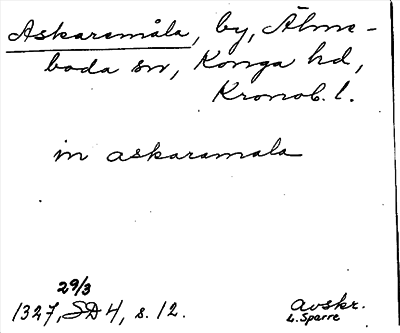 Askaremåla, by, Älme-
boda sn, Konga hd,
Kronob. l.
in askaramala
29/3
1327, SD 4, s. 12.
Avskr.
L. Sparre